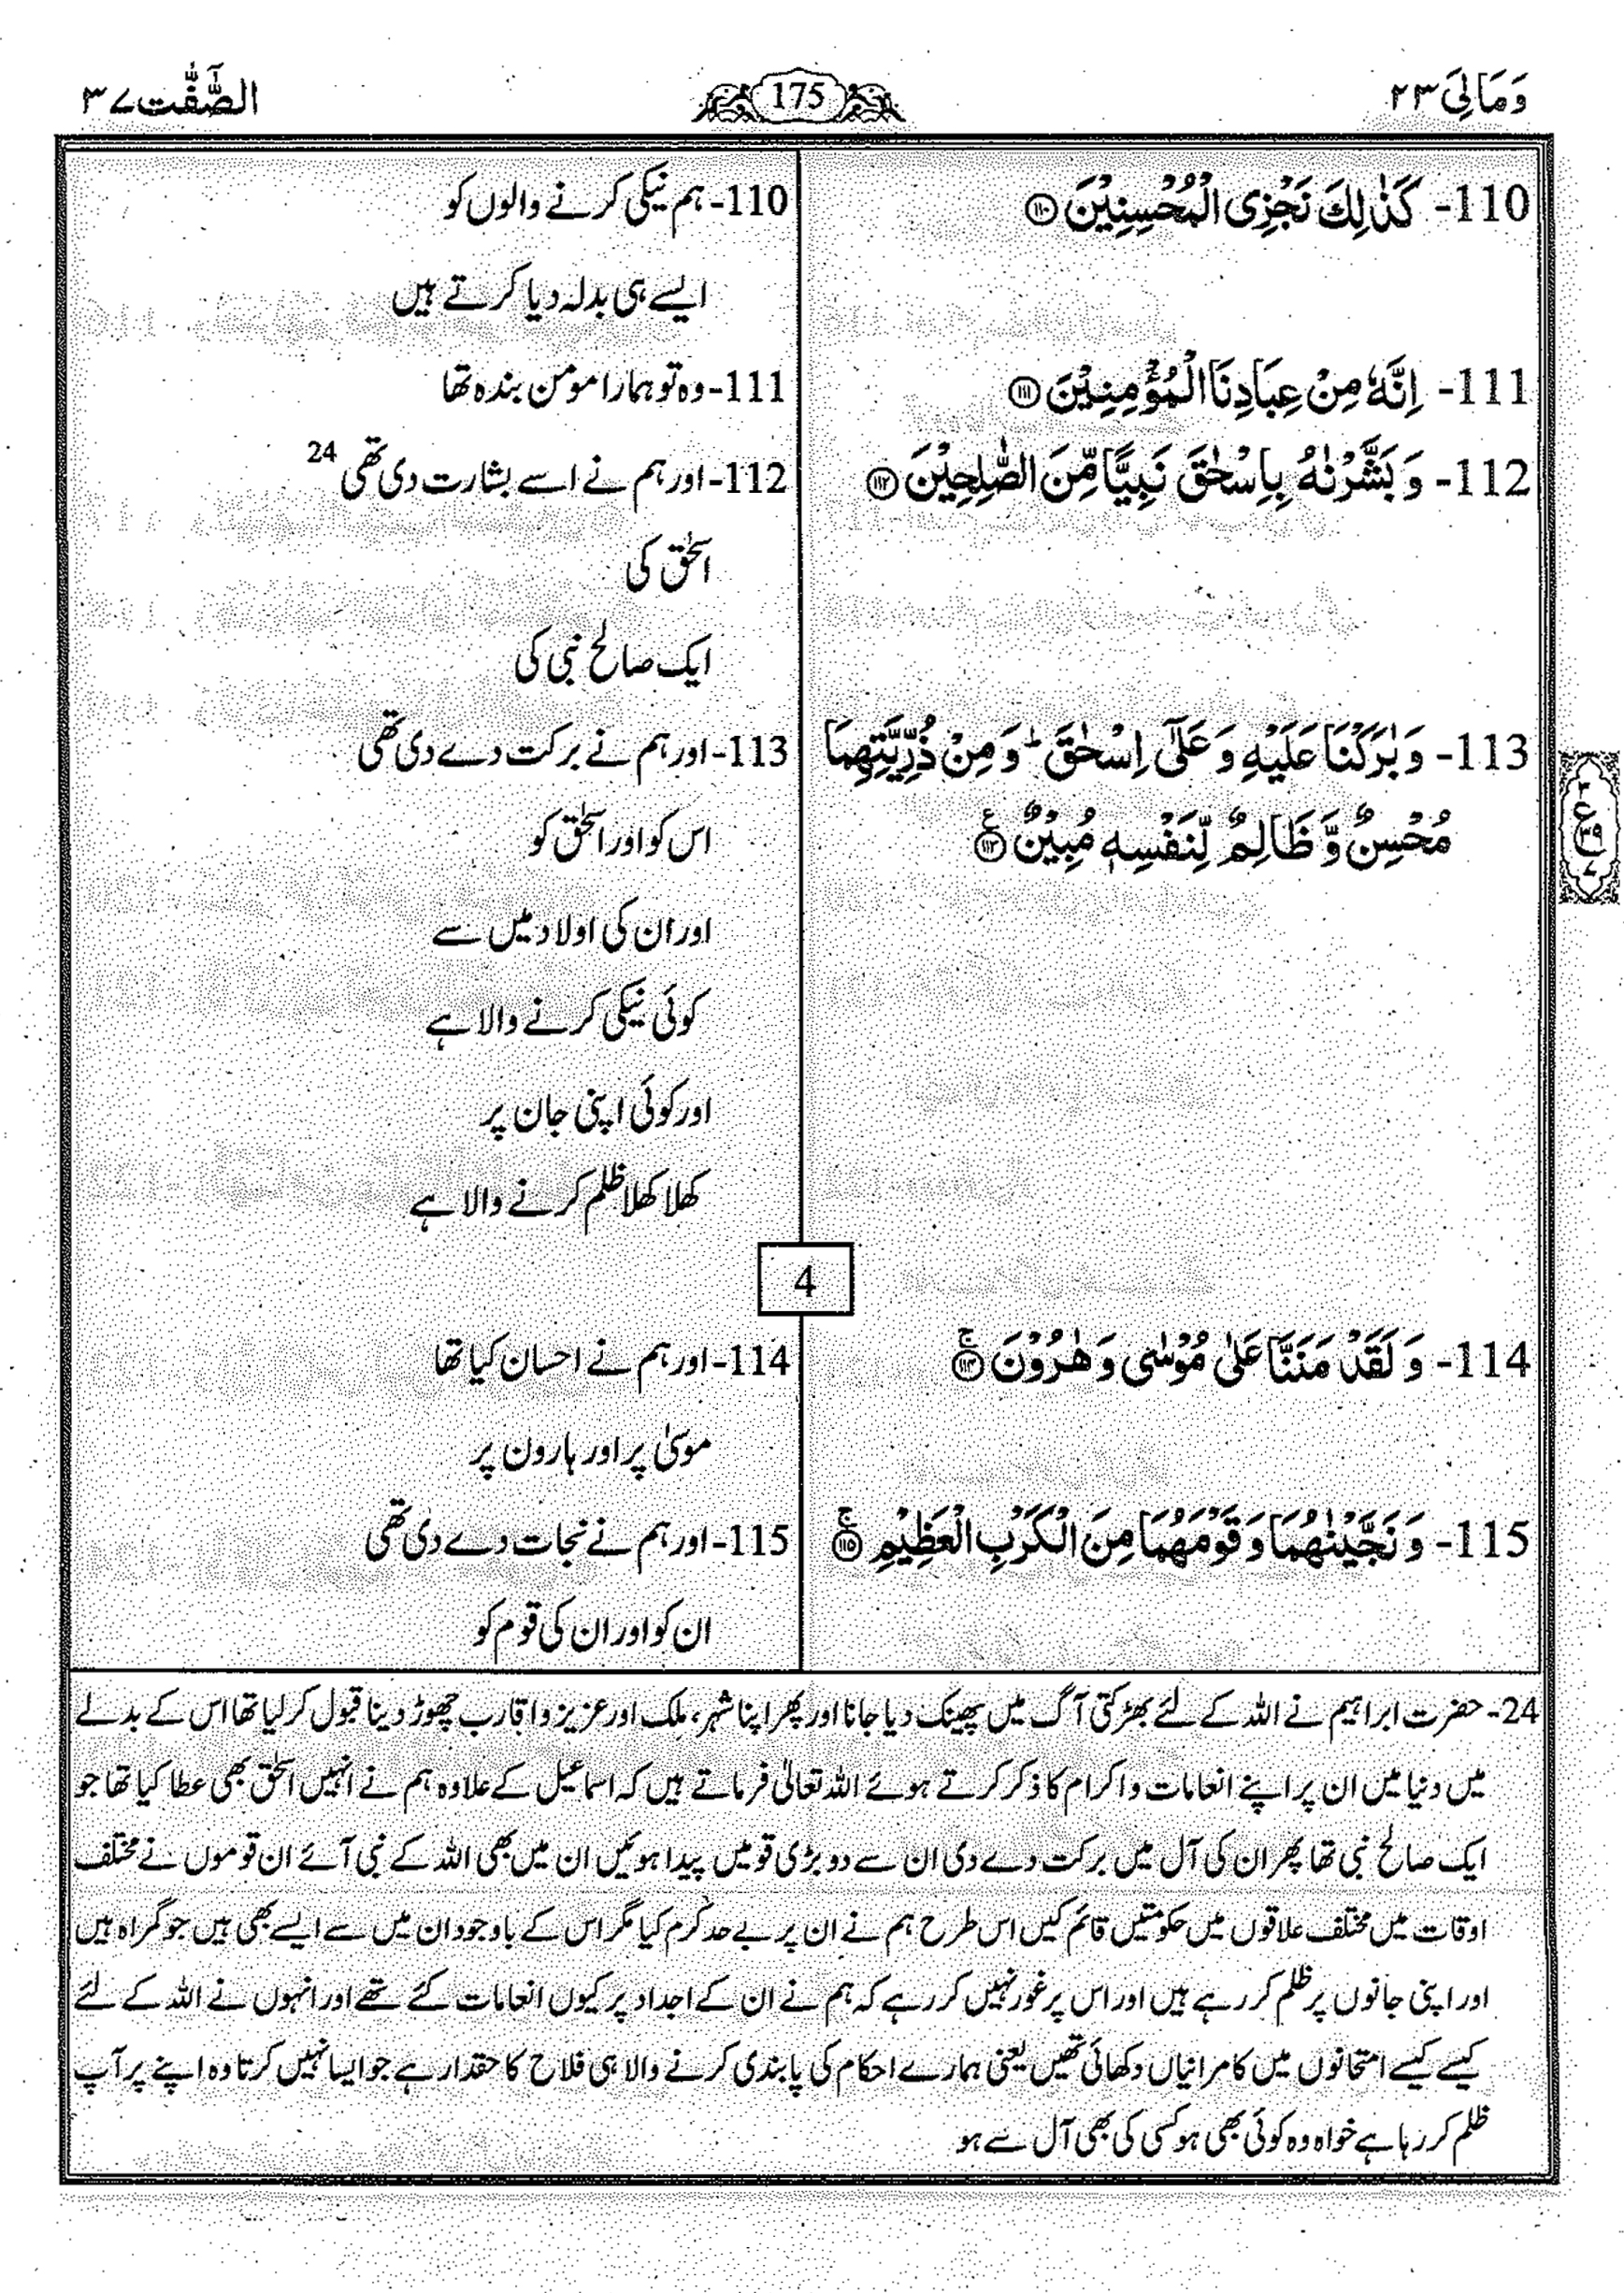 وَمَالِیَ ۲۳
175
الصّٰٓفّٰت ۳۷
110- كَذٰلِكَ نَجْزِی الْمُحْسِنِیْنَ ۝۱۱۰
111- اِنَّهٗ مِنْ عِبَادِنَا الْمُؤْمِنِیْنَ ۝۱۱۱
112- وَ بَشَّرْنٰهُ بِاِسْحٰقَ نَبِیًّا مِّنَ الصّٰلِحِیْنَ ۝۱۱۲
113- وَ بٰرَكْنَا عَلَیْهِ وَ عَلٰۤی اِسْحٰقَ ؕ وَ مِنْ ذُرِّیَّتِهِمَا
مُحْسِنٌ وَّ ظَالِمٌ لِّنَفْسِهٖ مُبِیْنٌ ۝۱۱۳ ع
۳
ع
۳۹
۷
110- ہم نیکی کرنے والوں کو
ایسے ہی بدلہ دیا کرتے ہیں
111- وہ تو ہمارا مؤمن بندہ تھا
112- اور ہم نے اسے بشارت دی تھی 24
اسحٰق کی
ایک صالح نبی کی
113- اور ہم نے برکت دے دی تھی
اس کو اور اسحٰق کو
اور ان کی اولاد میں سے
کوئی نیکی کرنے والا ہے
اور کوئی اپنی جان پر
کھلا کھلا ظلم کرنے والا ہے
4
114- وَ لَقَدْ مَنَنَّا عَلٰی مُوْسٰی وَ هٰرُوْنَ ۝۱۱۴ ج
115- وَ نَجَّیْنٰهُمَا وَ قَوْمَهُمَا مِنَ الْكَرْبِ الْعَظِیْمِ ۝۱۱۵ ج
114- اور ہم نے احسان کیا تھا
موسیٰ پر اور ہارون پر
115- اور ہم نے نجات دے دی تھی
ان کو اور ان کی قوم کو
24- حضرت ابراہیم نے اللہ کے لئے بھڑکتی آگ میں پھینک دیا جانا اور پھر اپنا شہر، ملک اور عزیز و اقارب چھوڑ دینا قبول کر لیا تھا اس کے بدلے
میں دنیا میں ان پر اپنے انعامات و اکرام کا ذکر کرتے ہوئے اللہ تعالیٰ فرماتے ہیں کہ اسماعیل کے علاوہ ہم نے انہیں اسحٰق بھی عطا کیا تھا جو
ایک صالح نبی تھا پھر ان کی آل میں برکت دے دی ان سے دو بڑی قومیں پیدا ہوئیں ان میں بھی اللہ کے نبی آئے ان قوموں نے مختلف
اوقات میں مختلف علاقوں میں حکومتیں قائم کیں اس طرح ہم نے ان پر بے حد کرم کیا مگر اس کے باوجود ان میں سے ایسے بھی ہیں جو گمراہ ہیں
اور اپنی جانوں پر ظلم کر رہے ہیں اور اس پر غور نہیں کر رہے کہ ہم نے ان کے اجداد پر کیوں انعامات کئے تھے اور انہوں نے اللہ کے لئے
کیسے کیسے امتحانوں میں کامرانیاں دکھائی تھیں یعنی ہمارے احکام کی پابندی کرنے والا ہی فلاح کا حقدار ہے جو ایسا نہیں کرتا وہ اپنے پر آپ
ظلم کر رہا ہے خواہ وہ کوئی بھی ہو کسی کی بھی آل سے ہو